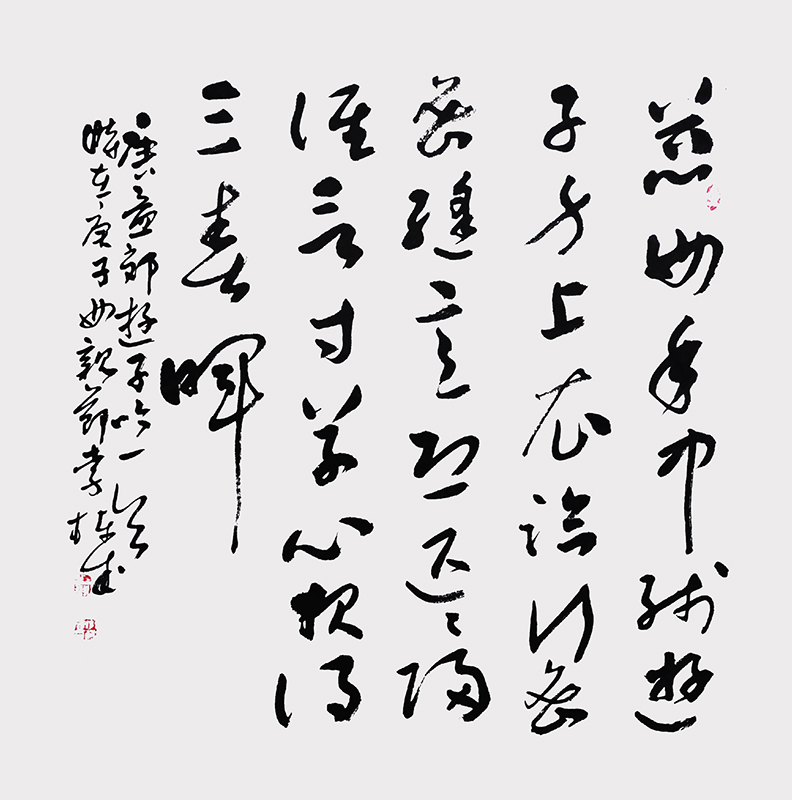 慈母手中线遊
子身上衣临行密
密缝意恐迟迟归
谁言寸草心报得
三春晖
唐孟郊遊子吟一首
時在庚子母親節李栋